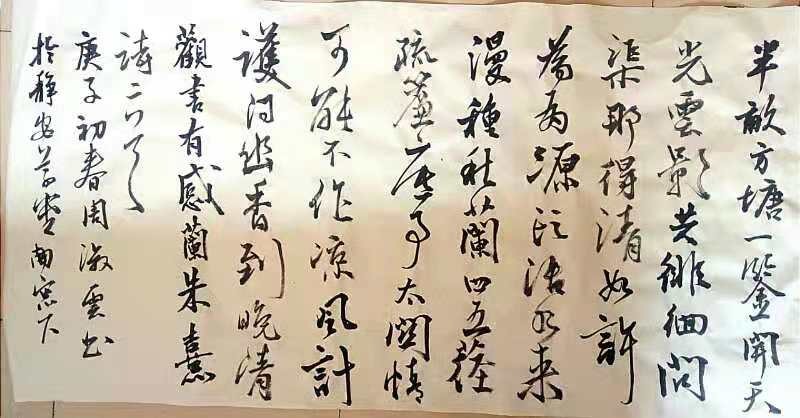 半畝方塘一鑒開天
光雲影共徘徊問
渠那得清如許
為有源頭活水來
漫種秋蘭四五莖
疏簾底事太關情
可能不作涼風計
護得幽香到晚清
觀書有感蘭朱熹
詩二
庚子初春周淑雲书
於靜安草堂南窓下